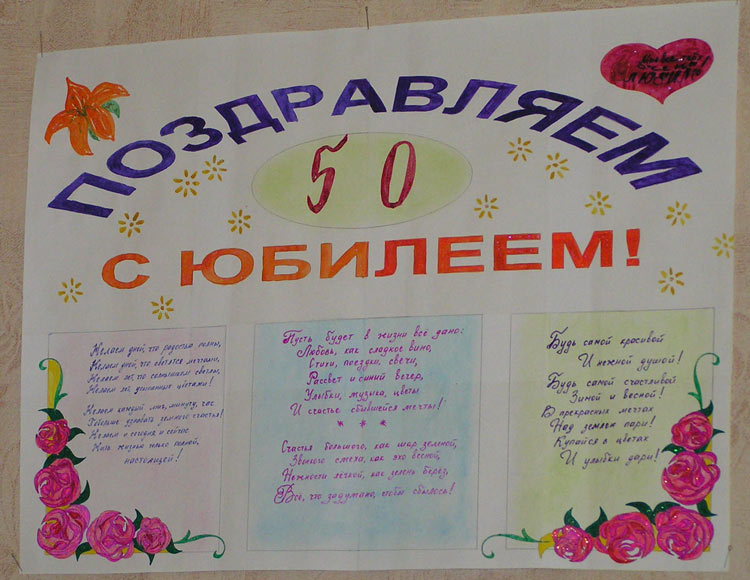 ПОЗДРАВЛЯЕМ
50
С ЮБИЛЕЕМ!
Желаем дней, что радостью полны,
Желаем дней, что светятся мечтами,
Желаем
Желаем
Желаем каждый миг, минуту, час
Побольше узнавать земного счастья!
Желаем и сегодня и сейчас
Жить жизнью только полной,
настоящей!
Пусть будет в жизни всё дано:
Любовь, как сладкое вино,
Стихи, поездки, свечи,
Рассвет и синий вечер,
Улыбки, музыка, цветы
И счастье сбывшейся мечты!
* * *
Счастья большого, как шар земной,
Звонкого смеха, как эхо весной,
Нежности лёгкой, как зелень берёз,
Всё, что задумано, чтобы сбылось!
Будь самой красивой
И нежной душой!
Будь самой счастливой
Зимой и весной!
В прекрасных мечтах
Над землёю пари!
Купайся в цветах
И улыбки дари!